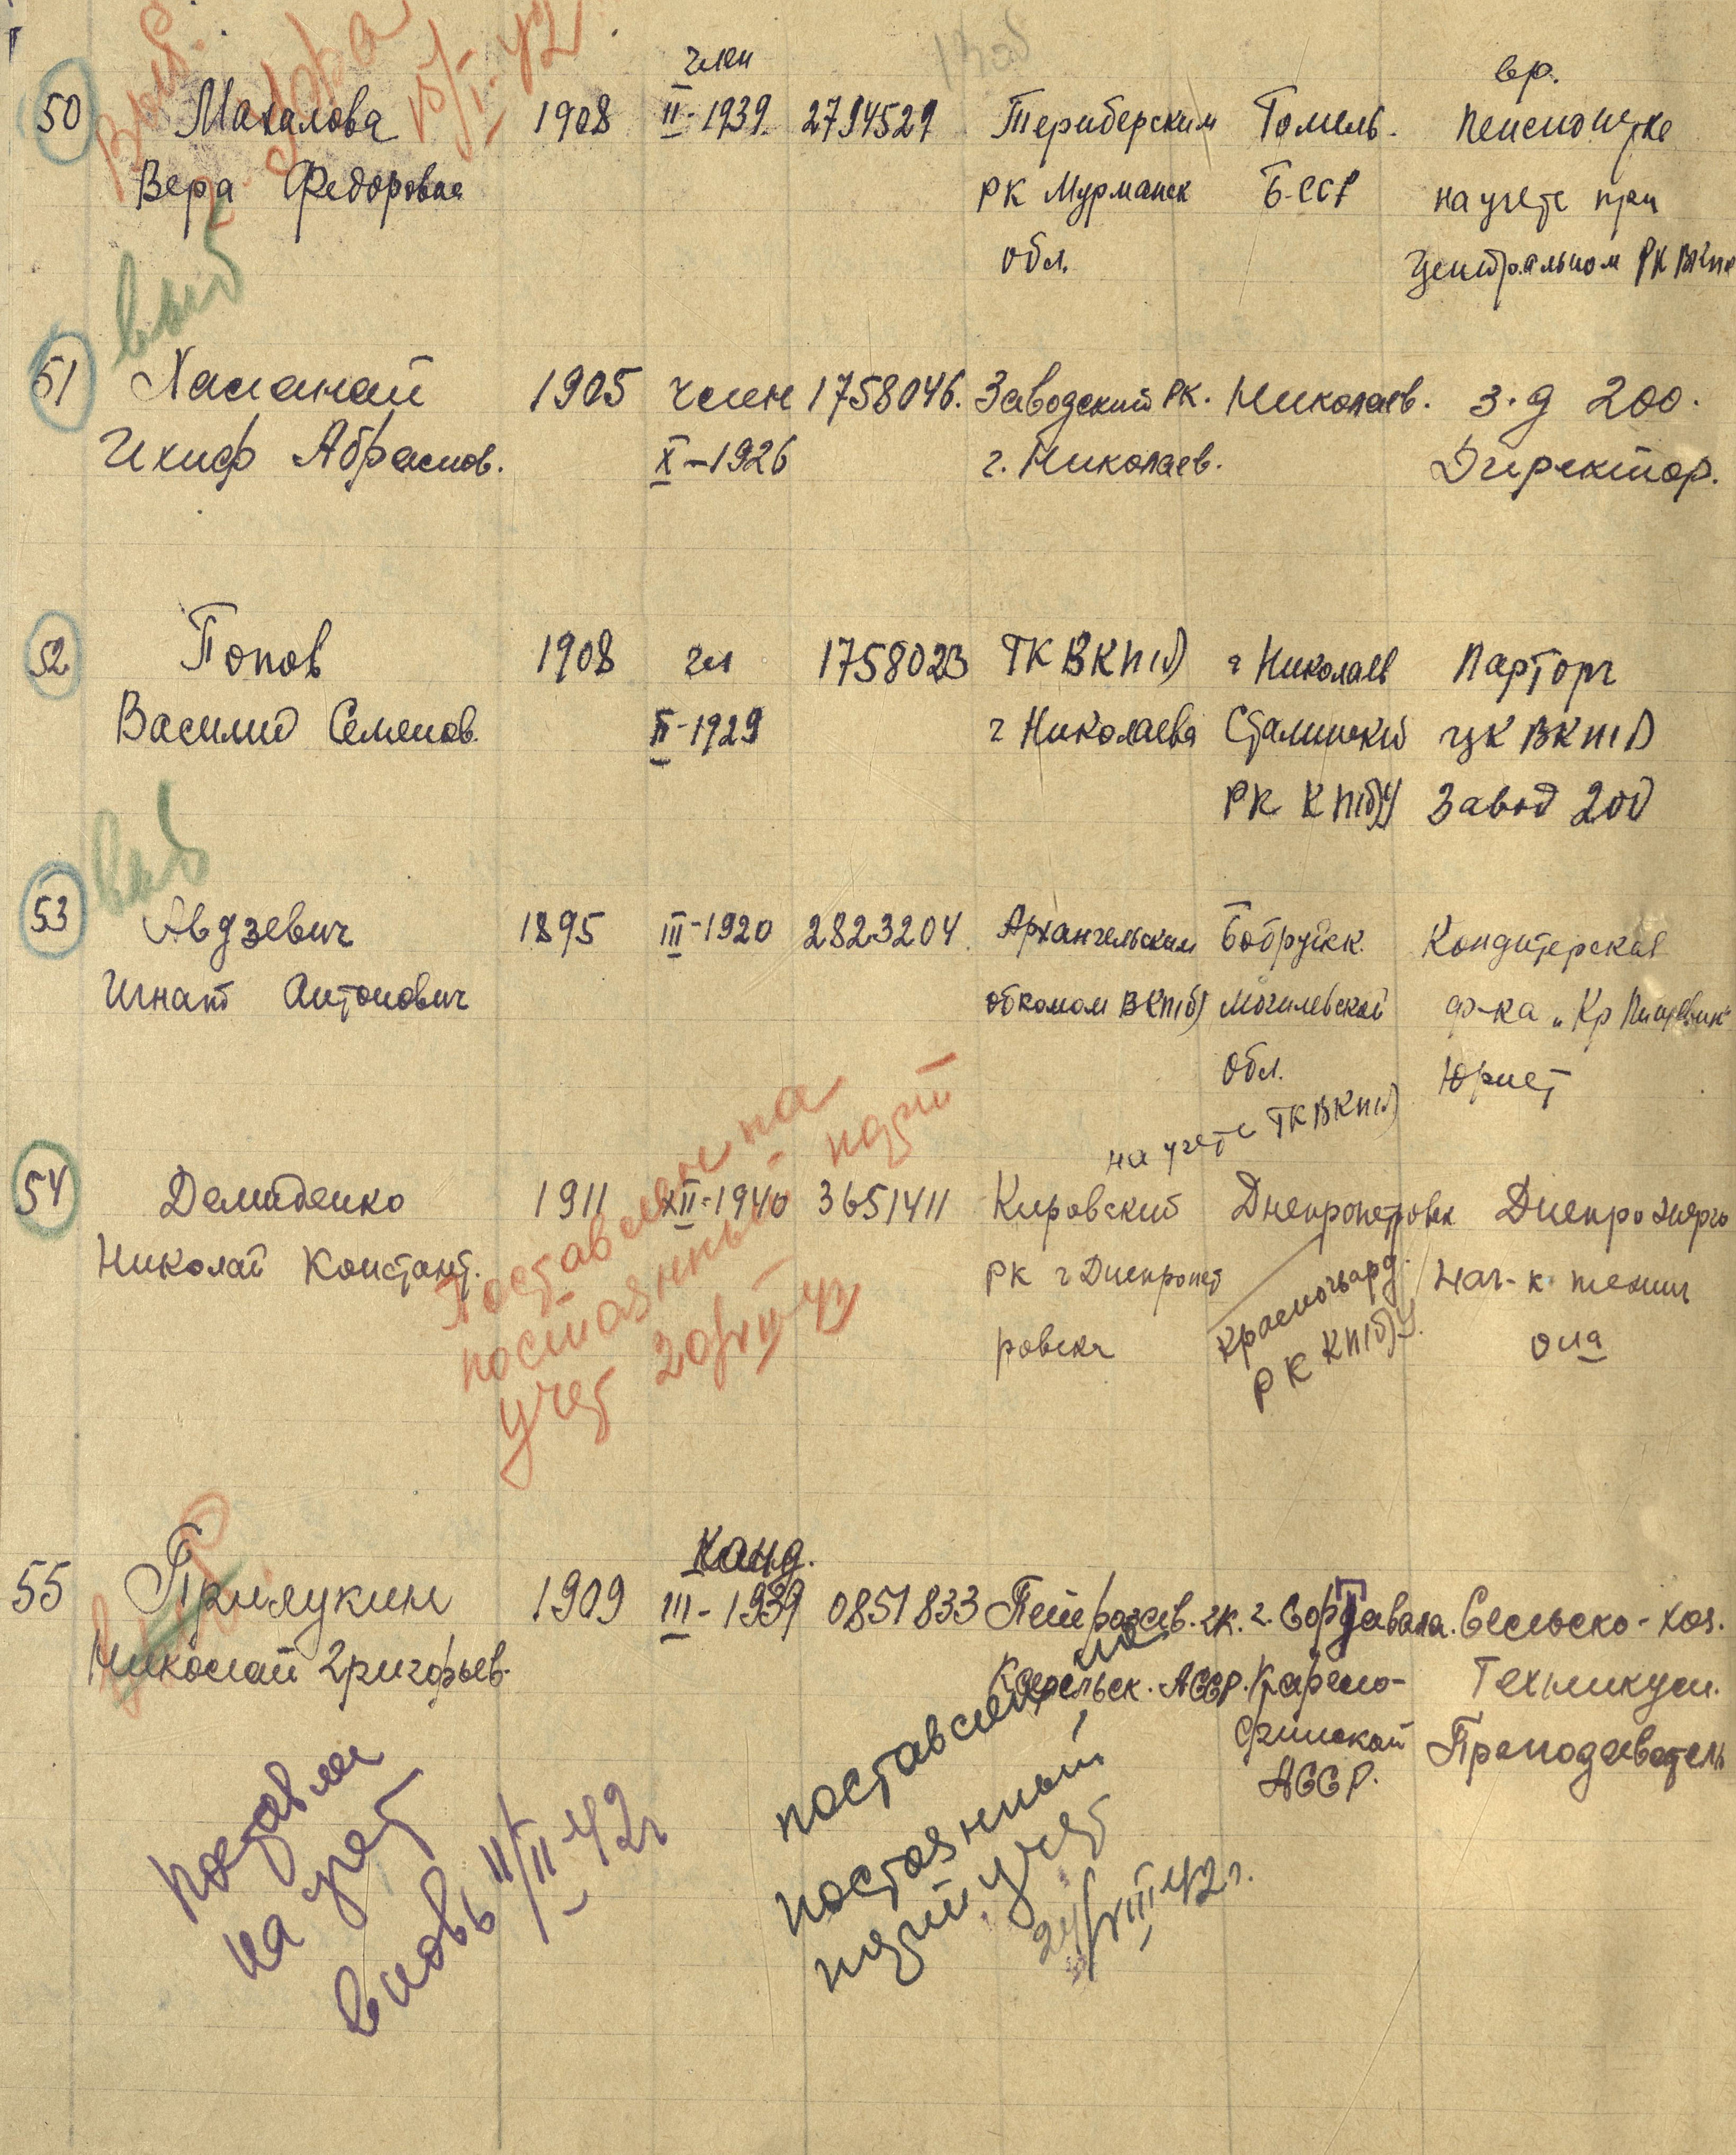 член вр.
50 Махалова 1908 II-1939 2794529 Териберским Гомель. пенсионерка
Вера Федоровна РК Мурманск Б.ССР на учете при
обл. Центральном РК ВКП
выб
51 1905 член 1758046. Заводский РК. Николаев. з-д 200.
Абрамов. X-1926 г. Николаев. Директор.
52 Попов 1908 чл 1758023 ГК ВКП(б) г Николаев Парторг
Василий Семенов. II-1929 г Николаева Сталинский ЦК ВКП(б)
РК КП(б)У Завод 200
выб
53 Авдзевич 1895 III-1920 2823204. Архангельским Бобруйск. Кондитерская
Игнат Антонович обкомом ВКП(б) Могилевской ф-ка „Кр Пищевик"
обл. Юрист
на учете ГК ВКП(б)
54 Демиденко 1911 XII-1940 3651411 Кировский Днепропетровск Днепроэнерго
Николай Констант. РК г Днепропет Красногвард. нач-к технич
ровска РК КП(б)У. отд
Поставлен на
постоянный парт
учет 20/VII-42
Канд.
55 Прилукин 1909 III-1939 0851833 Петрозав. гк. г. Сортавала. Сельско-хоз.
Николай Григорьев. Карельск. АССР. Карело- Техникум.
финской Преподаватель
АССР.
поставлен
на учет
вновь 11/II-42г
поставлен на
постоянный
парт учет
24/VIII-42г.